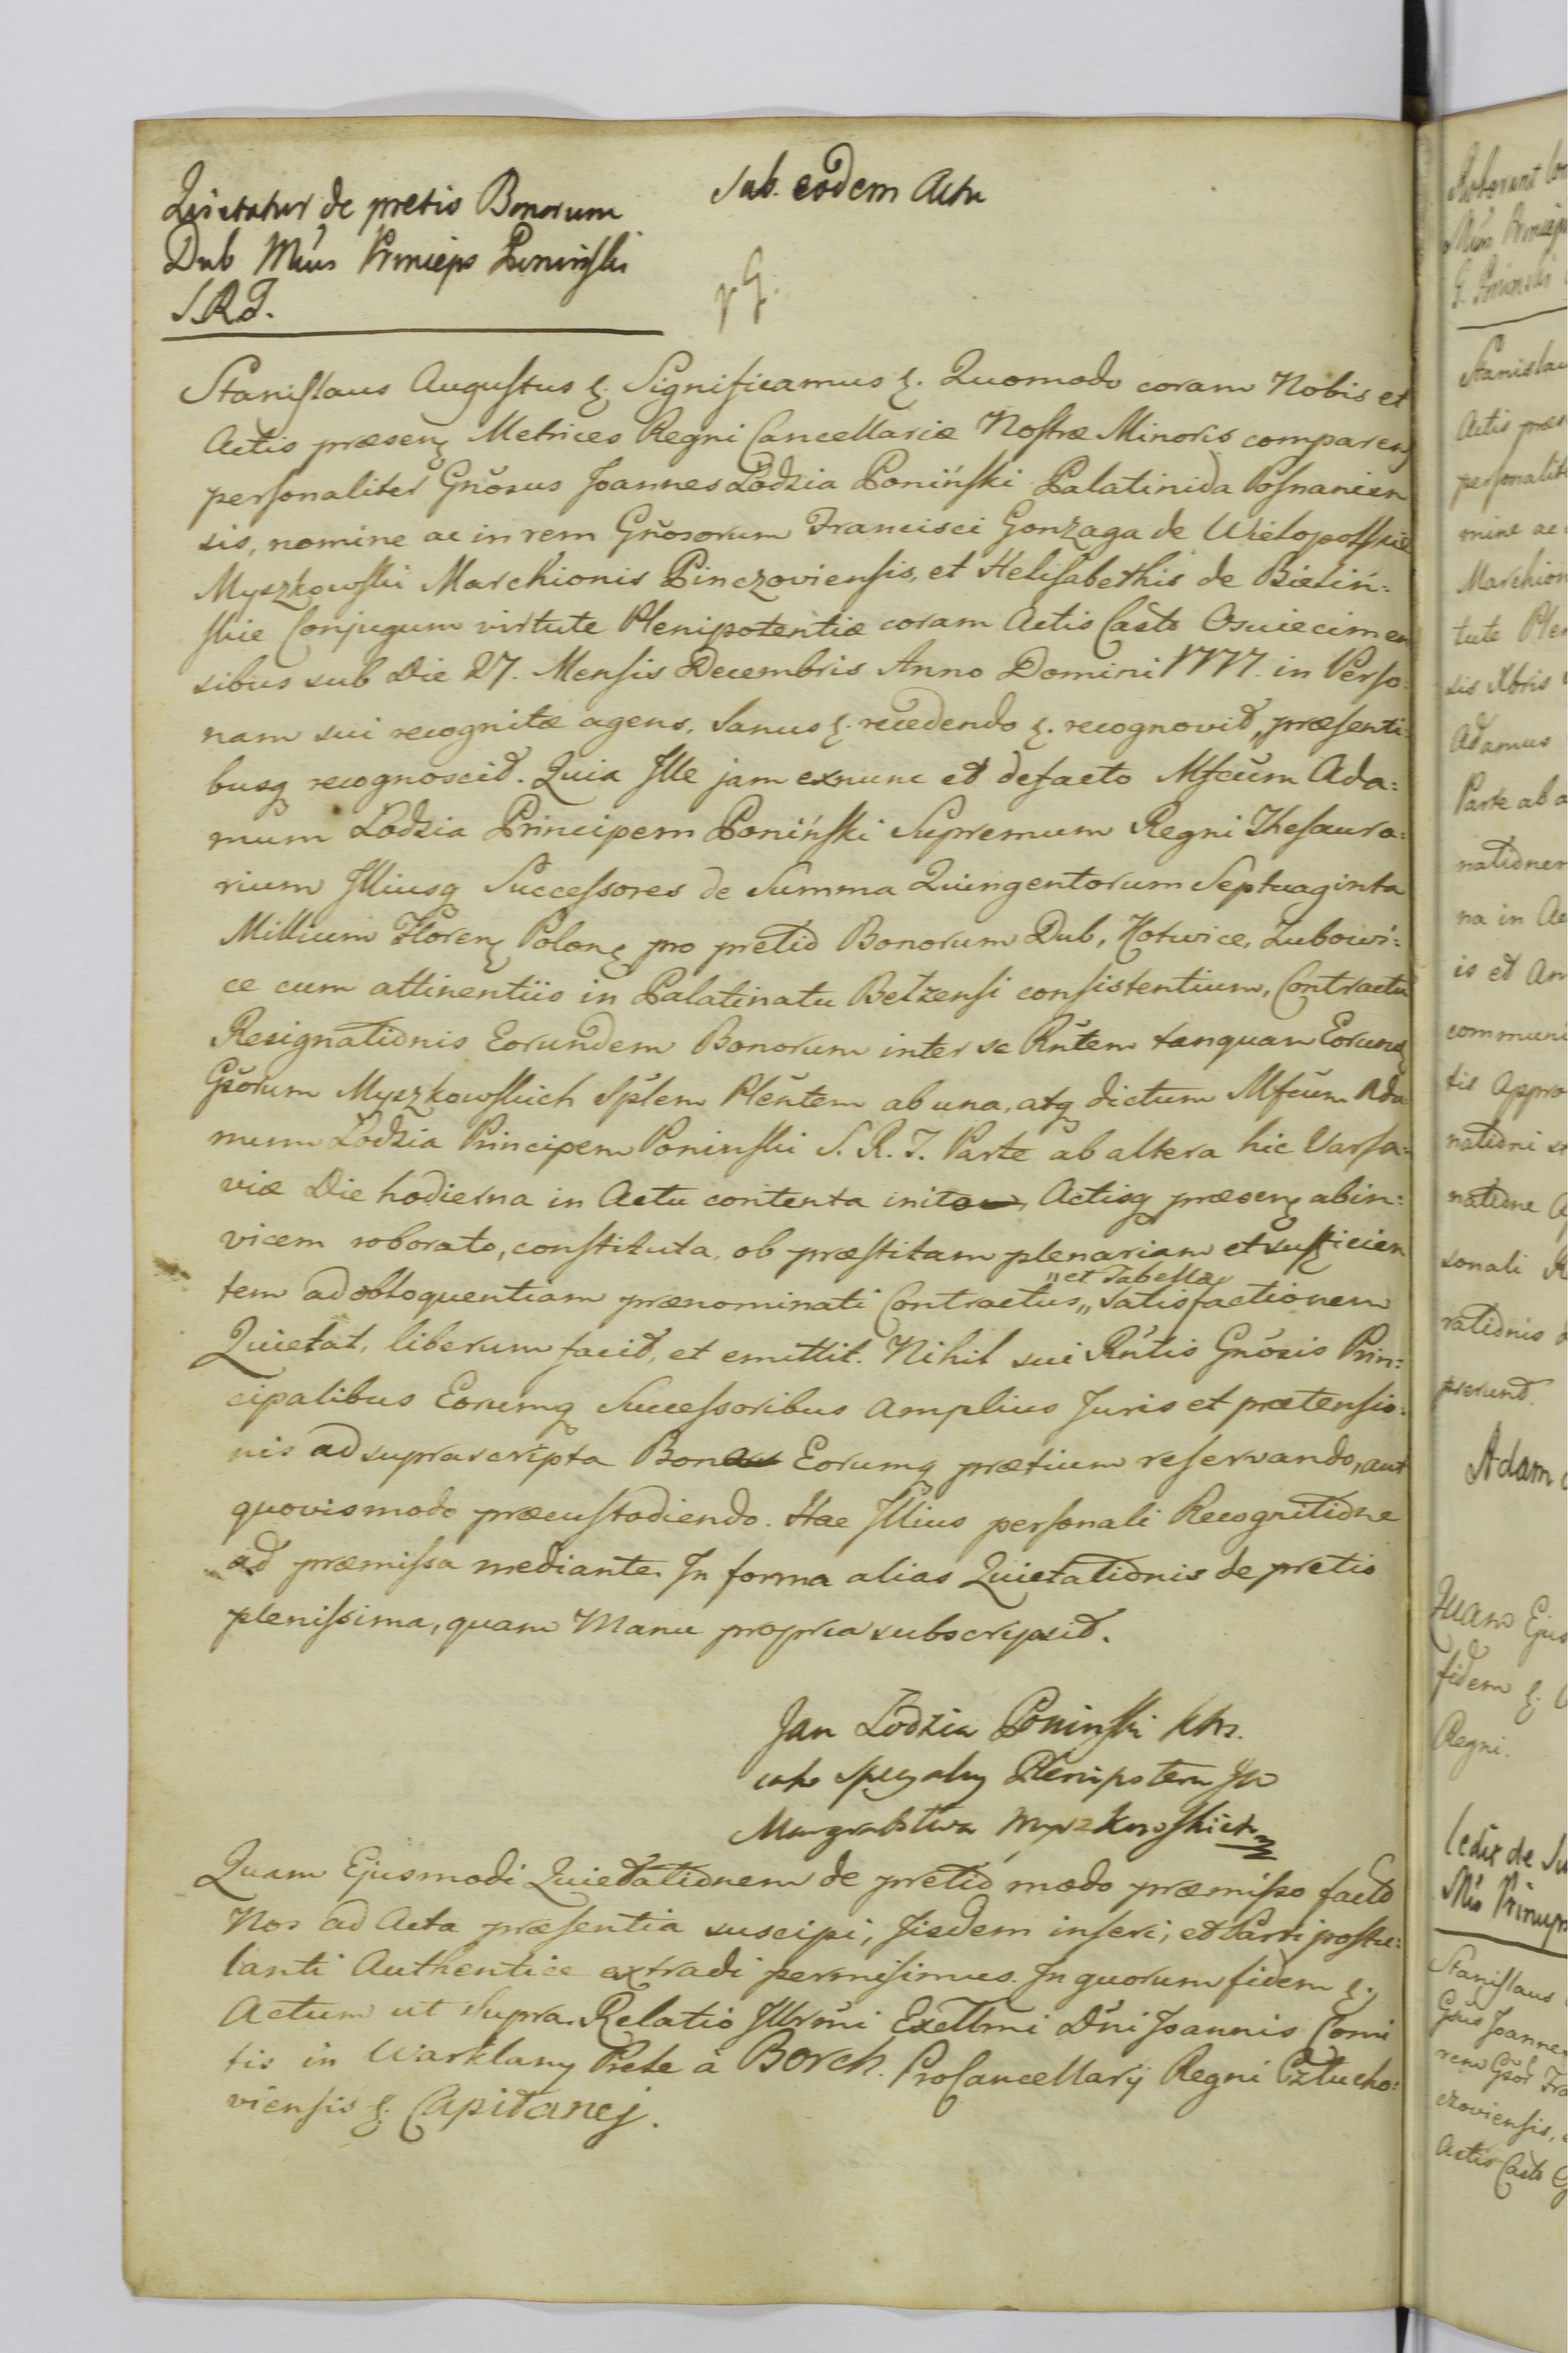 Quietatur de pretio Bonorum
Dub Mcus Princeps Poninski
S.R.T.
Sub eodem Actu
Stanislaus Augustus &. Significamus &. Quomodo coram Nobis et
Actis præsen. Metrices Regni Cancellariæ Nostræ Minoris comparens
personaliter Gnōsus Joannes Łodzia Poniński Palatinida Posnanien
sis, nomine ac in rem Gnōsorum Francisci Gonzaga de Wielopolskie
Myszkowski Marchionis Pinczoviensis, et Helisabethis de Bieliń:
skie Conjugum virtute Plenipotentiæ coram Actis Castr Osviecimen
sibus sub Die 27. Mensis Decembris Anno Domini 1777. in Perso:
nam sui recognitæ agens, Sanus &. recedendo &. recognovit, præsenti:
busq recognoscit. Quia Ille jam exnunc et defacto Mfcūm Ada:
mum Łodzia Principem Poniński Supremum Regni Thesaura:
rium Illiusq Successores de Summa Quingentorum Septuaginta
Millium Floren Polon pro pretio Bonorum Dub, Hotwice, Zubowi:
ce cum attinentiis in Palatinatu Bełzensi consistentium, Contractu
Resignationis Eorundem Bonorum inter se Rñtem tanquam Eorund
Gsōrum Myszkowskich Splem Plēntem ab una, atq dictum Mfcūm Ada
mum Łodzia Principem Poninski S. R. T. Parte ab altera hic Varsa:
viæ Die hodierna in Actu contenta inito Actisq præsen abin:
vicem roborato, constituta, ob præstitam plenariam et sufficien
tem ad obloquentiam prænominati Contractus „et Tabellæ„ satisfactionem
Quietat, liberum facit, et emittit. Nihil sui Rñtis Gnōsis Prin:
cipalibus Eorumq Successoribus amplius Juris et prætensio:
nis ad suprascripta Bona Eorumq prætium reservando, aut
quovismodo præcustodiendo. Hac Illius personali Recognitione
ad præmissa mediante. In forma alias Quietationis de pretio
plenissima, quam Manu propria subscripsit.
Jan Łodzia Poninski
jako specyalny Plenipotent JW
Margrabstwa Myszkowskich
Quam Ejusmodi Quietationem de pretio modo præmisso facto
Nos ad Acta præsentia suscipi, Iisdem inseri, et Parti postu:
lanti Authentice extradi permisimus. In quorum fidem &.
Actum ut supra. Relatio Illrmi Excllmi Dñi Joannis Comi
tis in Warklany Prele à Borch. ProCancellarij Regni Człucho:
viensis &. Capitanej.